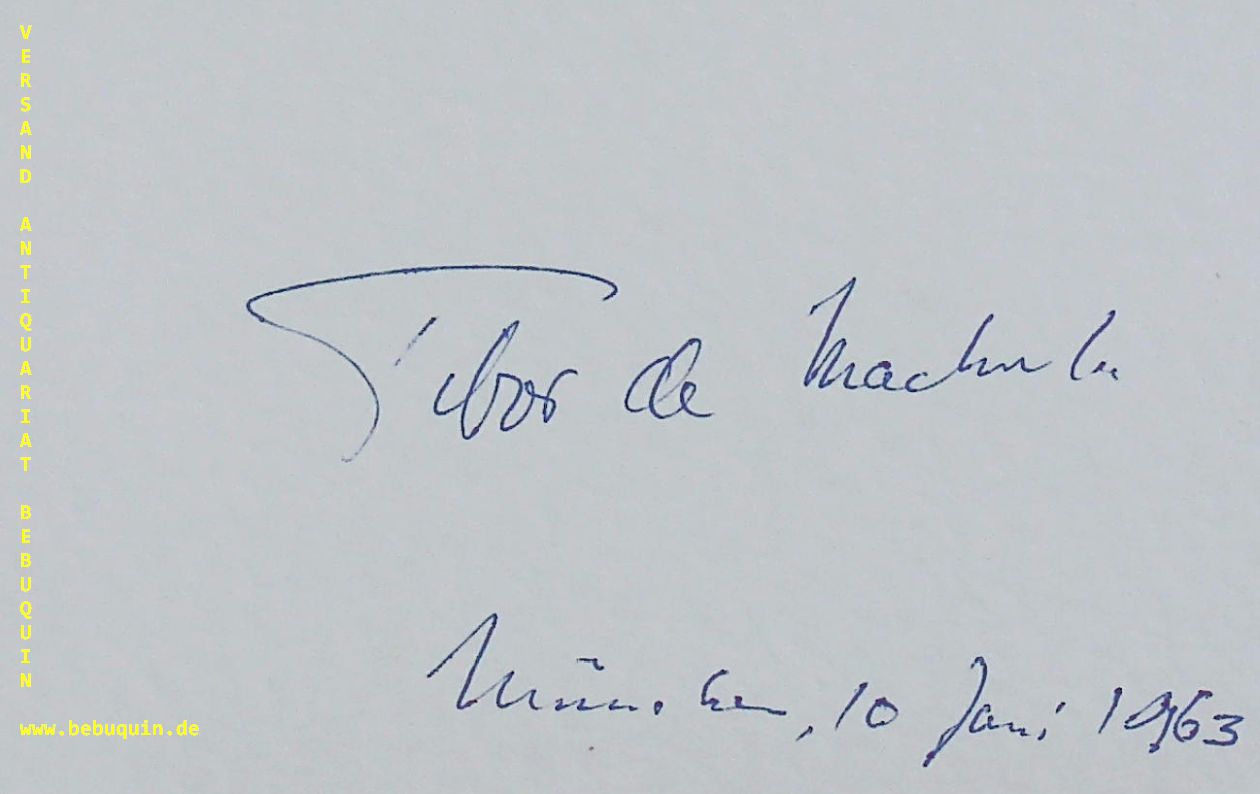 VERSAND ANTIQUARIAT BEBUQUIN
Tibor de Machula
München, 10 Juni 1963
www.bebuquin.de